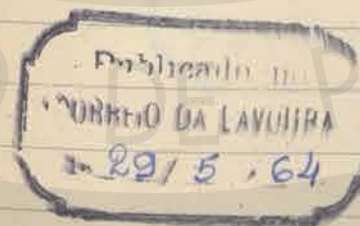 Publicado no
CORREIO DA LAVOURA
em 29 / 5 / 64